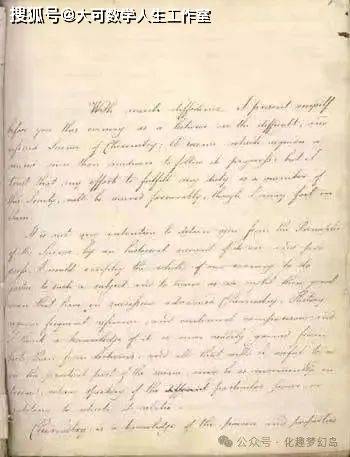 搜狐号@大可数学人生工作室
With much diffidence I present myself
before you this evening as a lecturer on the difficult,
Science of Chemistry; A science which requires a
mind to follow its progress; but I
trust that my effort to fulfill my duty as a member of
this Society, will be viewed favourably, though I may fail in
them.
It is not my intention to detain you from the Principles
of the Science by an historical account of its rise and pro-
gress. It would occupy the whole of our evening to do
justice to such a subject and to
that have in advanced Chemistry. History
requires frequent reference, and continued comparison and
I think a knowledge of it is more readily gained from
books than from lectures, and all that will is useful to us
in the practical part of the science, may be as conveniently
when speaking of the different particular power, or
substance to which it relates.
Chemistry is a knowledge of the powers and properties
公众号·化趣梦幻岛